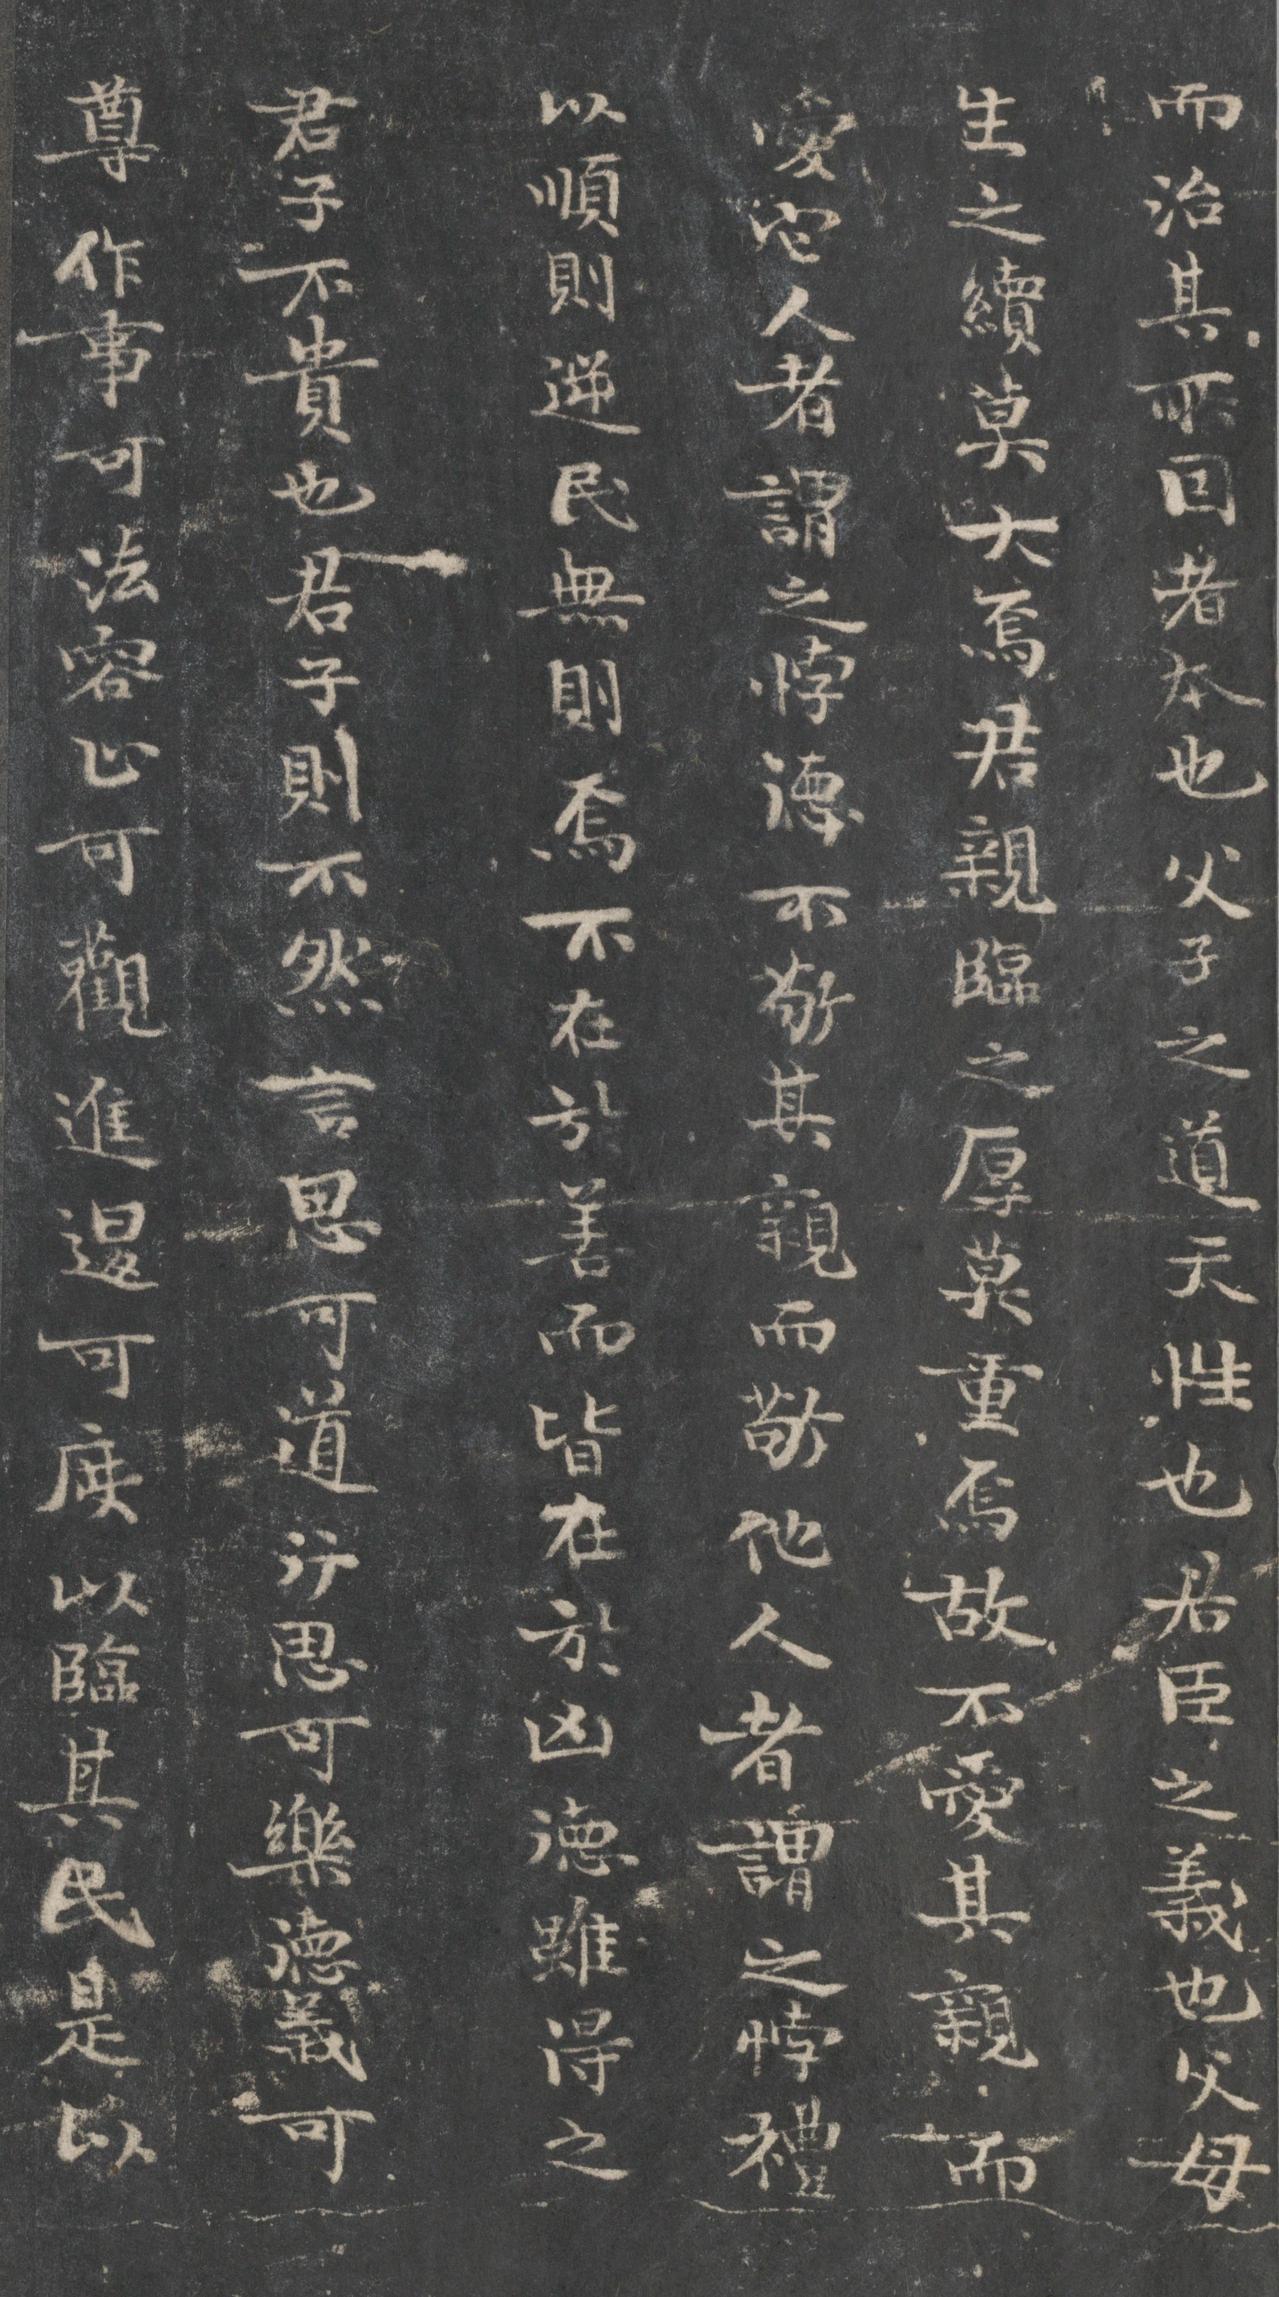 而治其所因者本也父子之道天性也君臣之義也父母
生之續莫大焉君親臨之厚莫重焉故不愛其親而
愛它人者謂之悖德不敬其親而敬他人者謂之悖禮
以順則逆民無則焉不在於善而皆在於凶德雖得之
君子不貴也君子則不然言思可道行思可樂德義可
尊作事可法容止可觀進退可度以臨其民是以